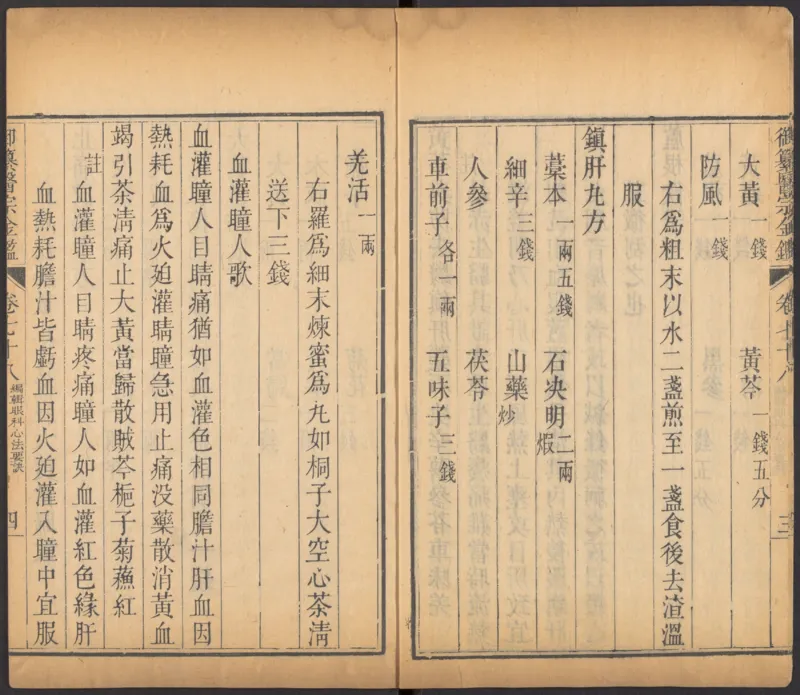 御纂醫宗金鑑 卷七十八 三
大黃一錢 黃芩一錢五分
防風一錢
右爲粗末以水二盞煎至一盞食後去渣溫
服
鎮肝丸方
藁本一兩五錢 石決明二兩煆
細辛三錢 山藥炒
人參 茯苓
車前子各一兩 五味子三錢
羌活一兩
右羅爲細末煉蜜爲丸如桐子大空心茶淸
送下三錢
血灌瞳人歌
血灌瞳人目睛痛猶如血灌色相同膽汁肝血因
熱耗血爲火廹灌睛瞳急用止痛没藥散消黃血
竭引茶淸痛止大黃當歸散賊芩梔子菊蘓紅
註血灌瞳人目睛疼痛瞳人如血灌紅色緣肝
血熱耗膽汁皆虧血因火廹灌入瞳中宜服
御纂醫宗金鑑 卷七十八 編輯眼科心法要訣 四